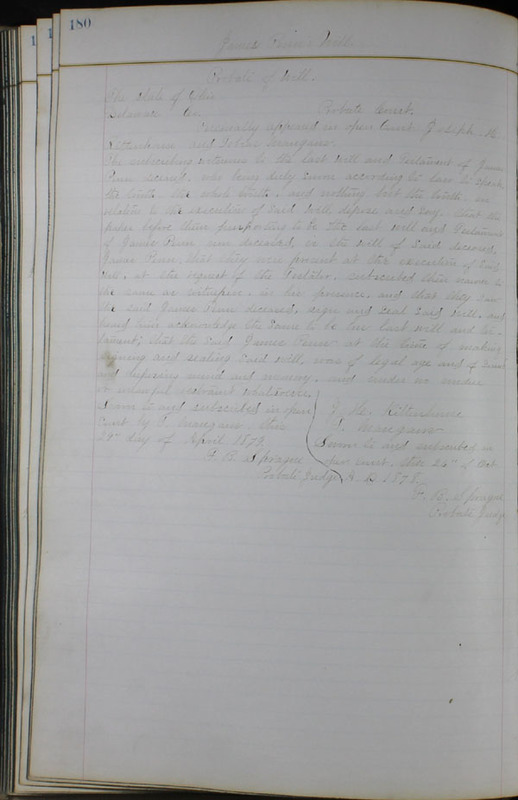 180
James Penn's Will
Probate of Will.
The State of Ohio
Delaware Co. Probate Court.
Personally appeared in open Court Joseph H.
Kittenhouse and
The subscribing witnesses to the last will and Testament of James
Penn deceased, who being duly sworn according to law to speak
the truth, the whole truth, and nothing but the truth, in
relation to the execution of said Will, depose and say, that the
paper before them purporting to be the last will and Testament
of James Penn now deceased, is the will of said deceased,
James Penn, that they were present at the execution of said
Will, at the request of the Testator, subscribed their names to
the same as witnesses, in his presence, and that they saw
the said James Penn deceased, sign and seal said Will, and
heard him acknowledge the same to be his last will and tes-
tament; that the said James Penn at the time of making
signing and sealing said Will, was of legal age and of sound
and disposing mind and memory, and under no undue
or unlawful restraint whatsoever.
Sworn to and subscribed in open
Court by this
29" day of April 1878.
F. B. Sprague
Probate Judge
J. H. Kittenhouse
Sworn to and subscribed in
open court, this 24" of Oct.
A. D. 1878
F. B. Sprague
Probate Judge